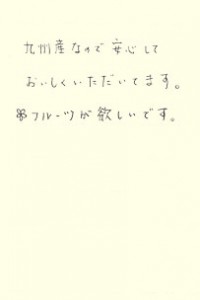 九州産なので安心して
おいしくいただいてます。
フルーツが欲しいです。